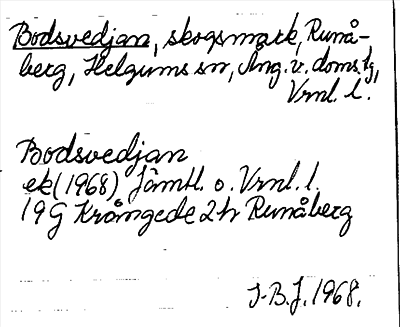 Bodsvedjan, skogsmark, Runå-
berg, Helgums sn, Ång. v. doms.tg,
Vrnl. l.
Bodsvedjan
ek (1968) Jämtl. o. Vrnl. l.
19G Krångede 2h Runåberg
J-B.J. 1968.